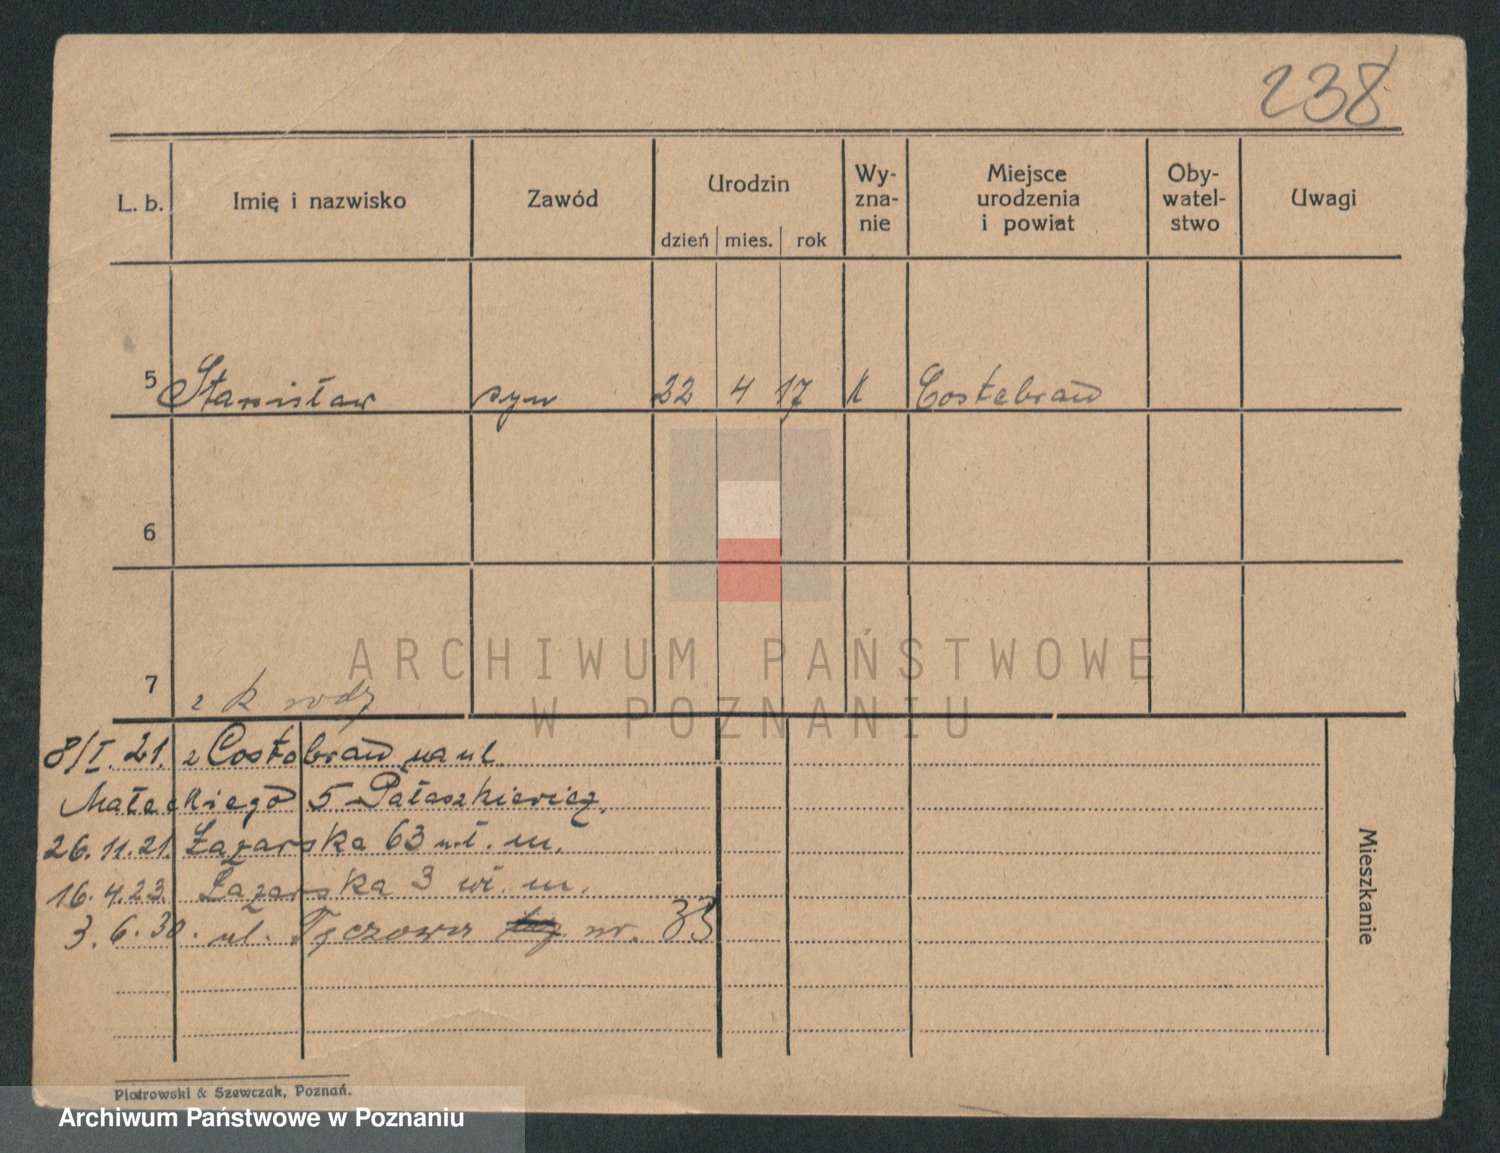 238
L. b. Imię i nazwisko Zawód Urodzin dzień mies. rok Wy-zna-nie Miejsce urodzenia i powiat Oby-watel-stwo Uwagi
5 Stanisław syn 22 4 17 k Costebrau
6
7 z k rodz
8/I. 21. z Costebrau na ul.
Małeckiego 5 Pałaszkiewicz.
26. 11. 21. Łazarska 63 wł. m.
16. 4. 23. Łazarska 3 wł. m.
3. 6. 30. ul. Tęczowa nr. 33
Mieszkanie
Piotrowski & Szewczak, Poznań.
ARCHIWUM PAŃSTWOWE
W POZNANIU
Archiwum Państwowe w Poznaniu